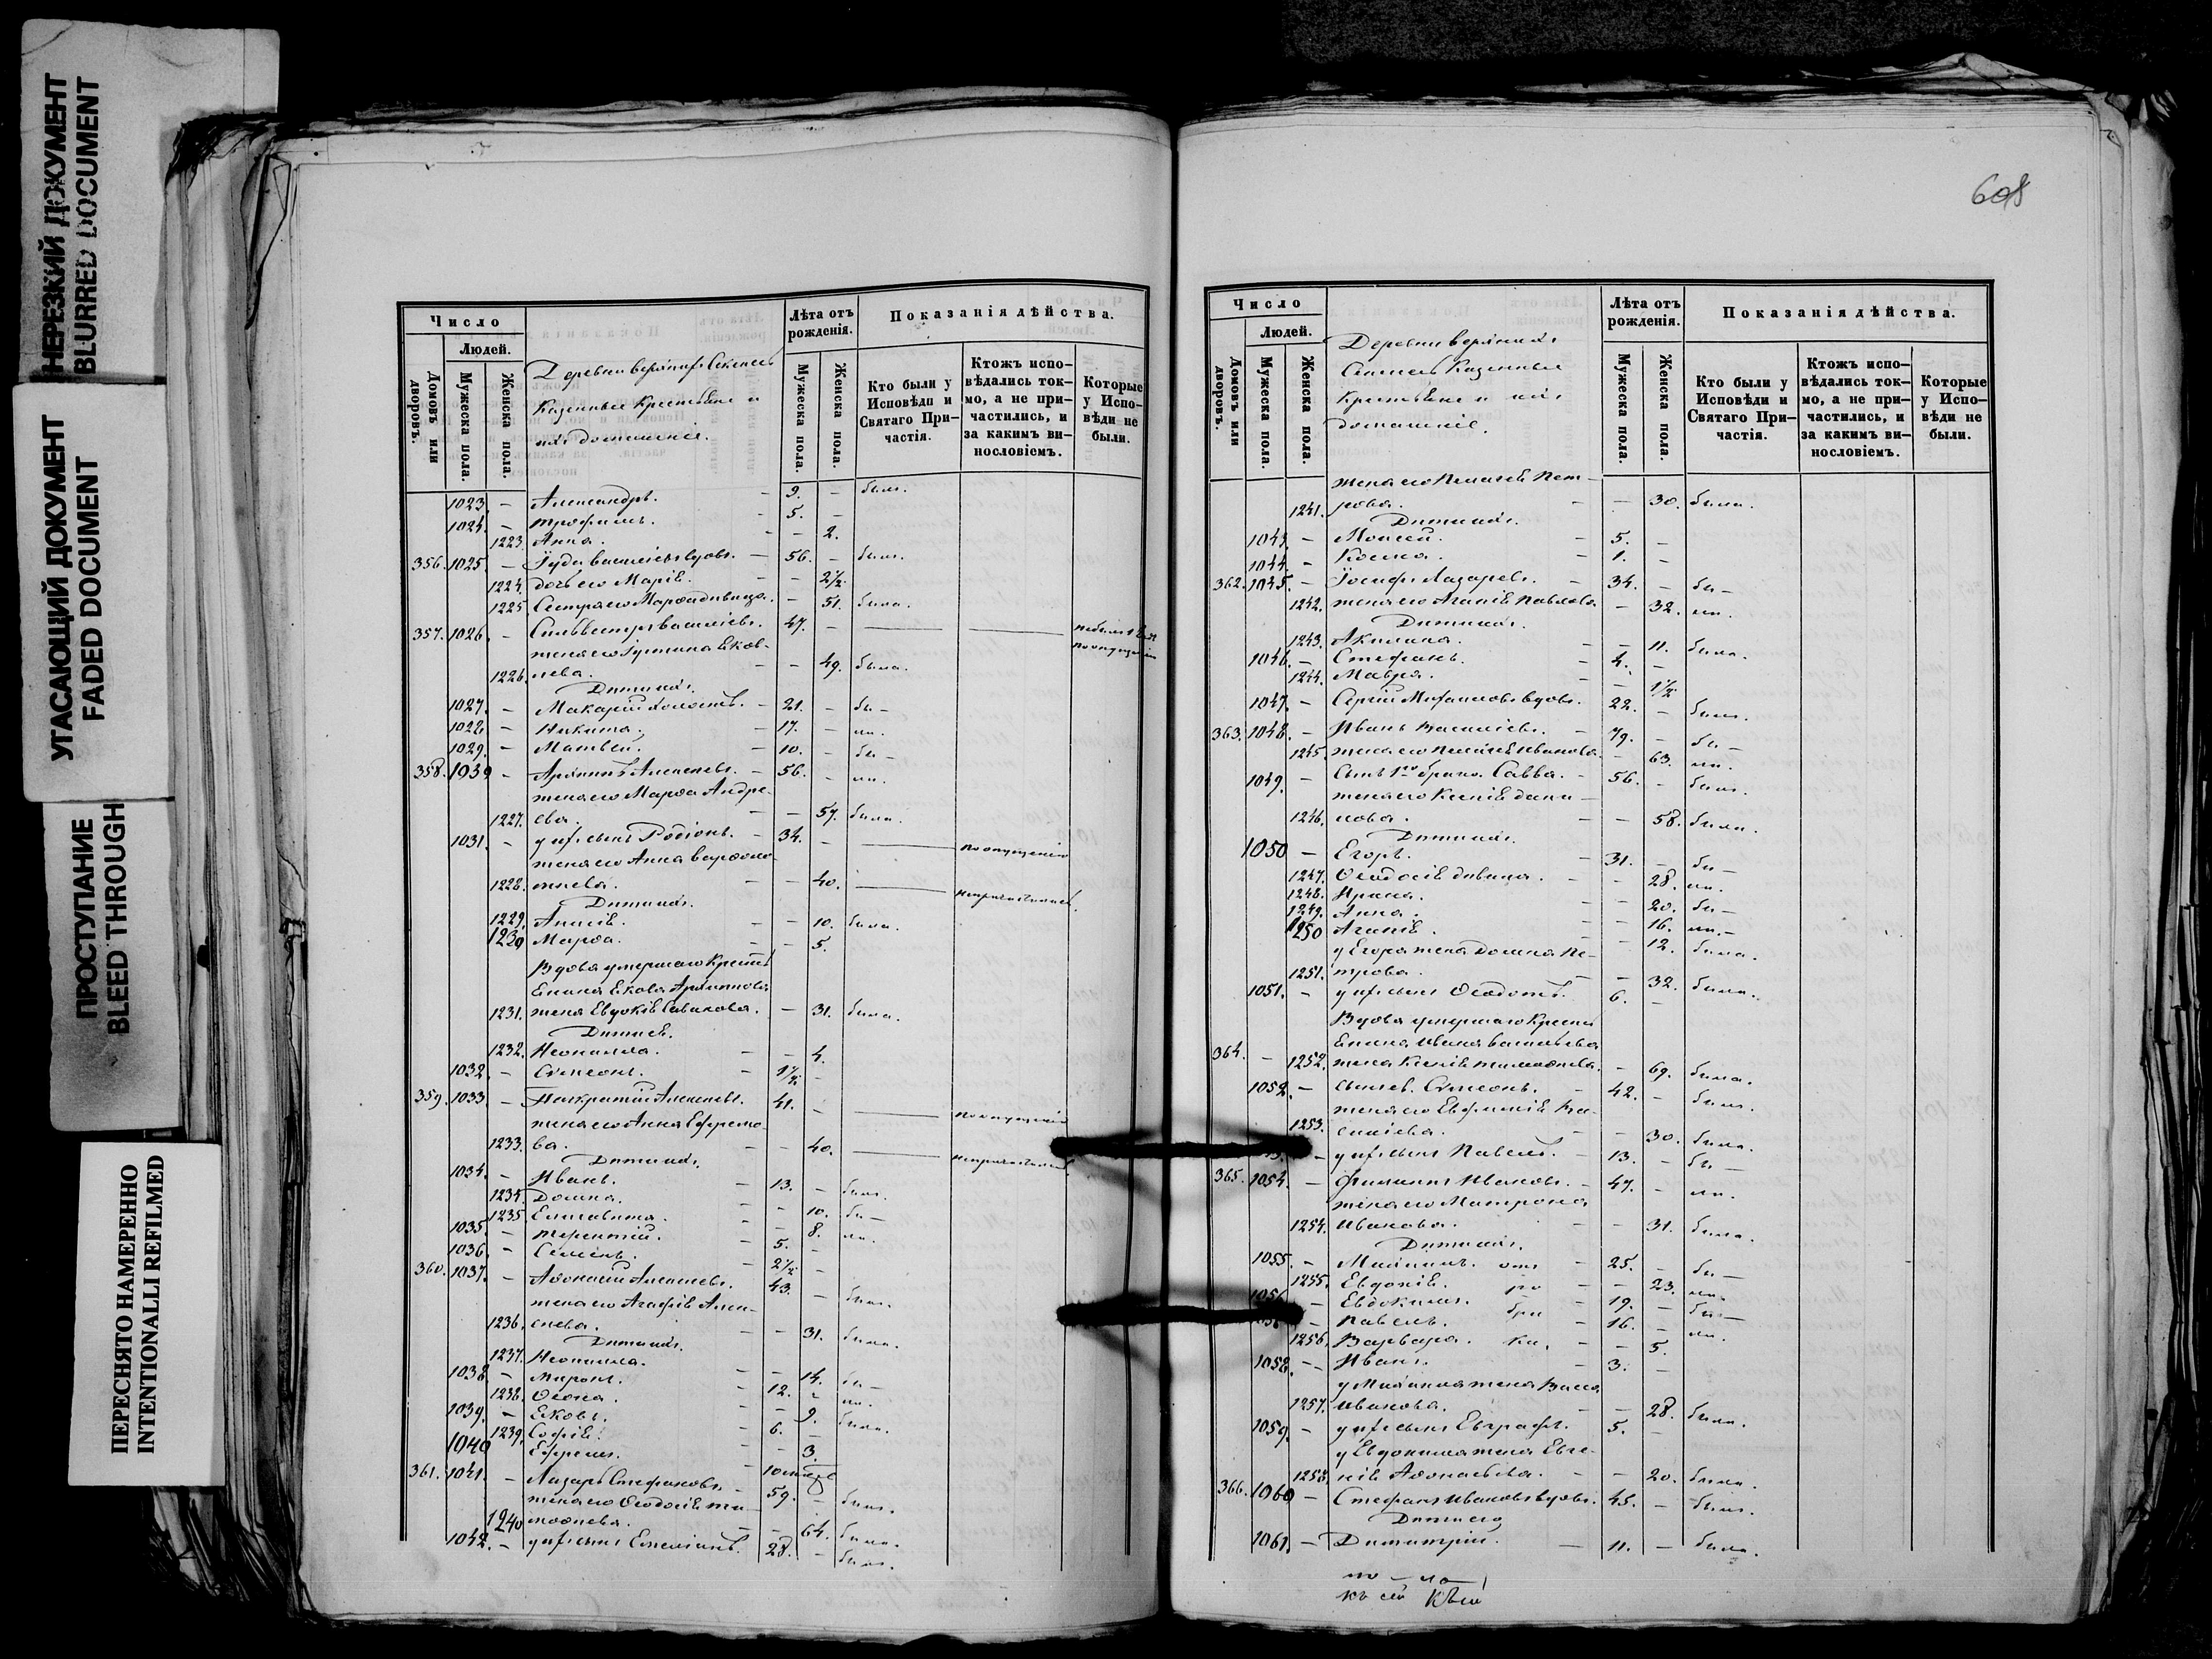 НЕРЕЗКИЙ ДОКУМЕНТ
BLURRED DOCUMENT
УГАСАЮЩИЙ ДОКУМЕНТ
FADED DOCUMENT
ПРОСТУПАНИЕ
BLEED THROUGH
ПЕРЕСНЯТО НАМЕРЕННО
INTENTIONALLI REFILMED
Число
Людей.
Домовъ или дворовъ.
Мужеска пола.
Женска пола.
Казенные Крестьяне и
ихъ домашніе.
Лѣта отъ рожденія.
Мужеска пола.
Женска пола.
Показанія дѣйства.
Кто были у Исповѣди и Святаго При-частія.
Ктожъ испо-вѣдались ток-мо, а не при-частились, и за какимъ ви-нословіемъ.
Которые у Испо-вѣди не были.
1023. – Александръ. – 9. – былъ.
1024. – Трофимъ. – 5. –
1223. Анна. – – 2.
356. 1025. – Іуда Васильевъ вдовъ. – 56. – былъ.
1224. дочь его Марія. – – 2½.
1225. Сестра его Марѳа дѣвица. – 51. была.
357. 1026. – Сильвестръ Васильевъ. 47. –
жена его Іустина Яков-
1226. лева. – – 49. была.
Дѣти ихъ.
1027. – Макарій холостъ. – 21. – бы –
1028 – Никита. – 17. – ли.
1029. – Матвей. – 10. – бы –
358. 1030 – Архиппъ Алексеевъ. – 56. – ли.
жена его Марѳа Андре-
1227. ева. – – 57. была.
1031. – у ихъ сынъ Родіонъ. – 34. – по опущенію
жена его Анна Варѳоло-
1228. меева. – – 40.
Дѣти ихъ.
1229. – – 10. была.
1230 Марѳа. – – 5.
Вдова умершаго Кресть
янина Якова Архиппова
1231. жена Евдокія Савинова. – 31. была.
1232. Неонилла. – – 4.
1032. – Сѵмеонъ. – 1½. –
359. 1033. – Панкратій Алексеевъ. 41. – по опущенію
жена его Анна Ефремо-
1233. ва. – – 40.
Дѣти ихъ.
1034. – Иванъ. – 13. – былъ.
1234. Домна. – – 10. бы –
1235 Елисавета. – – 8. ли.
1035. – Терентій. – 5. –
1036. – Семенъ. – 2½ –
360. 1037. – Аѳонасій Алексеевъ. 43. – былъ.
жена его Агафія Алек-
1236. сеева. – – 31. была.
Дѣти ихъ.
1237. Неонилла. – – 14. бы –
1038. – Миронъ. – 12. – ли.
1238. – – 9. была.
1039. – Яковъ. – 6. –
1239. Софія. – – 3.
1040 Ефремъ. –
361. 1041. – Лазарь Стефановъ – 59. – былъ.
жена его Ѳеодосія Ти-
1240 моѳеева. – – 64. была.
1042. – у ихъ сынъ Емеліанъ. 28. – былъ.
608
Число
Людей.
Домовъ или дворовъ.
Мужеска пола.
Женска пола.
Крестьяне и ихъ
домашніе.
Лѣта отъ рожденія.
Мужеска пола.
Женска пола.
Показанія дѣйства.
Кто были у Исповѣди и Святаго При-частія.
Ктожъ испо-вѣдались ток-мо, а не при-частились, и за какимъ ви-нословіемъ.
Которые у Испо-вѣди не были.
жена его Пелагея Пет-
1241. рова. – – 30. была.
Дѣти ихъ.
1043. – Моисей. – 5. –
1044. – Косма. – 1. –
362. 1045. – Іосифъ Лазаревъ. – 34. – бы –
1242. жена его Агапія Павлова – 32. ли.
Дѣти ихъ.
1243. Акилина. – – 11. была.
1046. – Стефанъ. – 4. –
1244. Мавра. – – 1½
1047. – Сергій вдовъ. 22. – былъ.
363. 1048. – Иванъ Васильевъ. – 79. – бы –
1245. жена его Пелагея Иванова. – 63. ли.
1049. – Сынъ 1го брака Савва. – 56. – былъ.
жена его Ксенія Дани-
1246. лова. – – 58. была.
Дѣти ихъ.
1050 – Егоръ. – 31. – бы –
1247. Ѳеодосія дѣвица. – – 28. ли.
1248. Ирина. – – 20. бы –
1249. Анна. – – 16. ли. –
1250 Агапія. – – 12. была.
у Егора жена Домна Пе-
1251. трова. – – 32. была.
1051. – у ихъ сынъ Ѳеодотъ. 6. –
Вдова умершаго Кресть
янина Ивана Васильева
364. – 1252. жена Ксенія Тимоѳеева. – 69. была.
1052. – сынъ ея Сѵмеонъ. – 42. – былъ.
жена его Евфимія Ва-
1253. силіева. – – 30. была.
– у ихъ сынъ Павелъ. – 13. – бы –
365. 1054. – Филиппъ Ивановъ. – 47. – ли.
жена его Матрона
1254. Иванова. – – 31. была.
Дѣти ихъ.
1055. – Михаилъ. отъ – 25. – бы –
1255. Евдокія. – – 23. ли.
1056 – Евдокимъ. – 19. – бы –
– Павелъ. – 16. – ли.
1256. Варвара. ка. – – 5.
1058. – Иванъ. – 3. –
у Михаила жена Васса
1257. Иванова. – – 28. была.
1059. – у ихъ сынъ Евграфъ. 5. –
у Евдокима жена Евге-
1258. нія Аѳонасьева. – – 20. была.
366. 1060 – Стефанъ Ивановъ вдовъ. 45. – былъ.
1061. – Димитрій. – 11. – былъ.